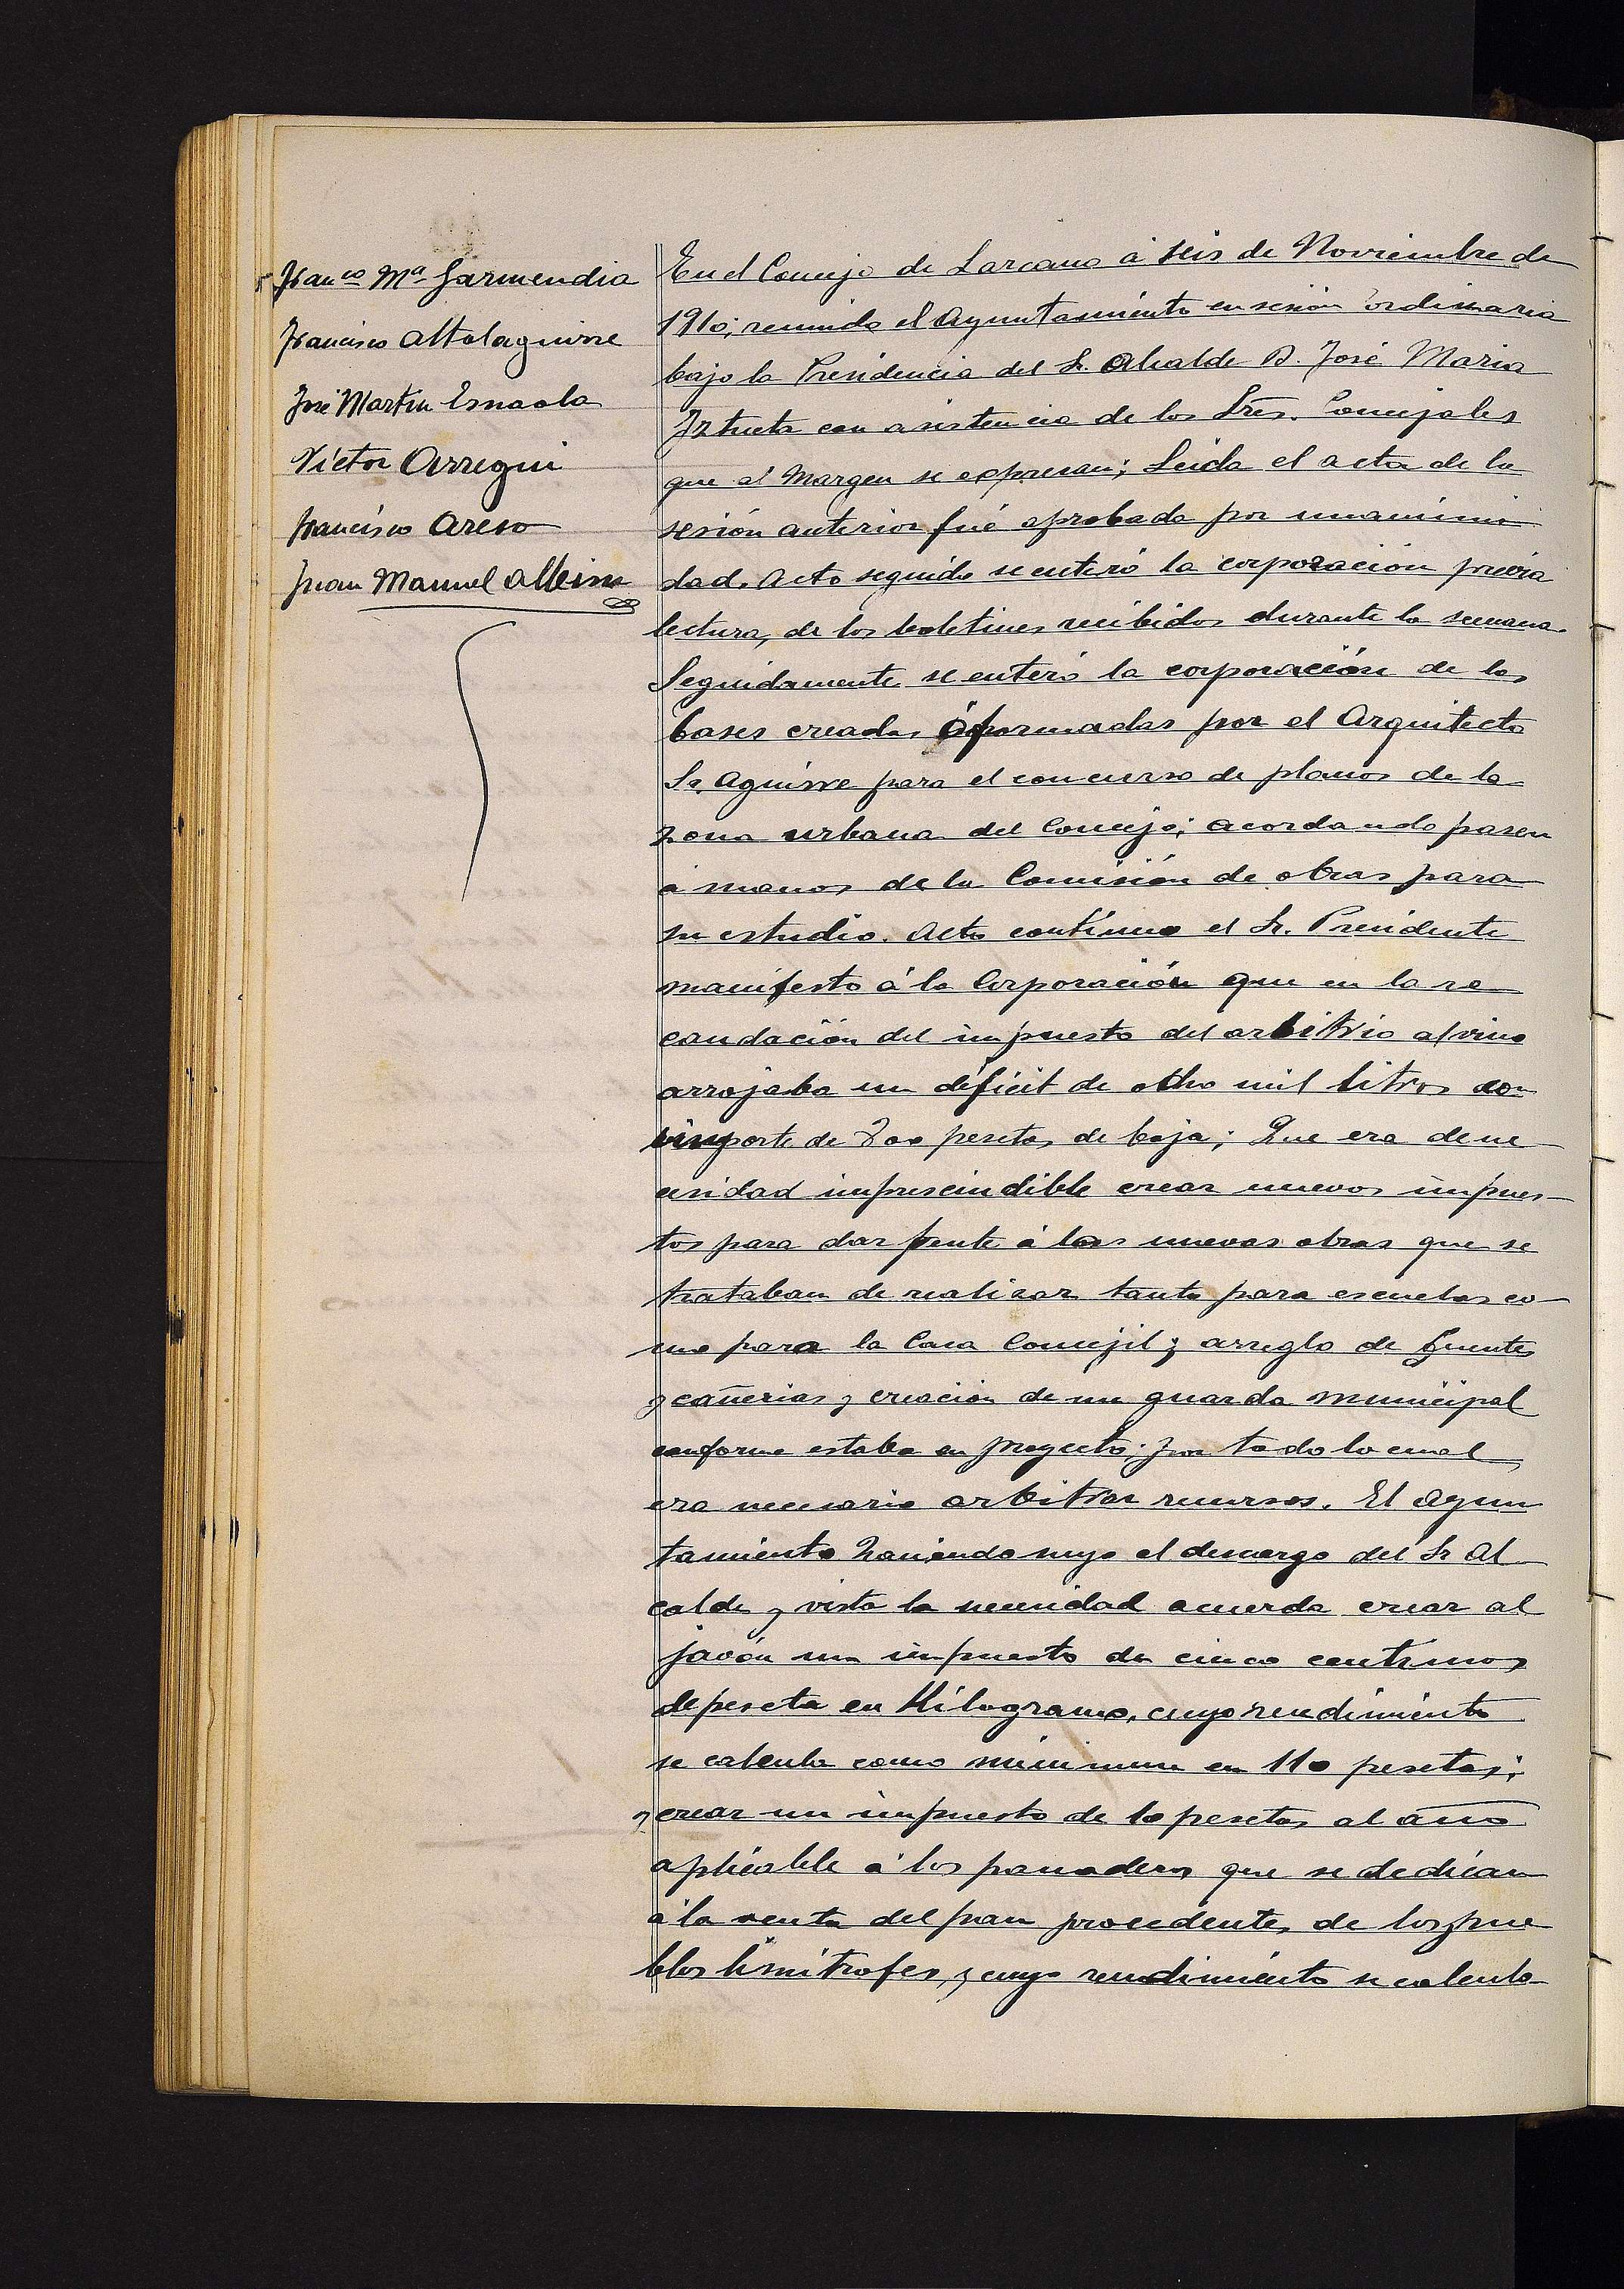 Franco Ma Garmendia
Francisco Altolaguirre
José Martin Esnaola
Victor Arregui
Francisco Areso
Juan Manuel Albisu
En el Concejo de Lazcano á seis de Noviembre de
1910; reunido el Ayuntamiento en sesión ordinaria
bajo la Presidencia del Sr. Alcalde D. José Maria
Iztueta con asistencia de los Sres. Concejales
que al margen se expresan; Leida el acta de la
sesión anterior fué aprobada por unanimi
dad. Acto seguido se enteró la corporación previa
lectura, de los boletines recibidos durante la semana.
Seguidamente se enteró la corporación de las
bases creadas ó formadas por el Arquitecto
Sr. Aguirre para el concurso de planos de la
zona urbana del Concejo; acordando pasen
á manos de la Comisión de obras para
su estudio. Acto continuo el Sr. Presidente
manifesto á la Corporación que en la re
caudación del impuesto del arbitrio al vino
arrojaba un déficit de otho mil litros con
importe de 200 pesetas de baja; Que era de ne
cesidad imprescindible crear nuevos impues-
tos para dar frente á las nuevas obras que se
trataban de realizar tanto para escuelas co-
mo para la Casa Concejil y arreglo de fuentes
y cañerias y creación de un guarda municipal
conforme estaba en proyecto; por todo lo cual
era necesario arbitrar recursos. El Ayun
tamiento haciendo suyo el descargo del Sr Al
calde y vista la necesidad acuerda crear al
javón un impuesto de cinco centimos
de peseta en Kilogramo, cuyo rendimiento
se calcula como minimum en 110 pesetas;
y crear un impuesto de 10 pesetas al año
aplicable á los panaderos que se dedican
á la venta del pan procedentes de los pue
blos limitrofes, y cuyo rendimiento se calcula